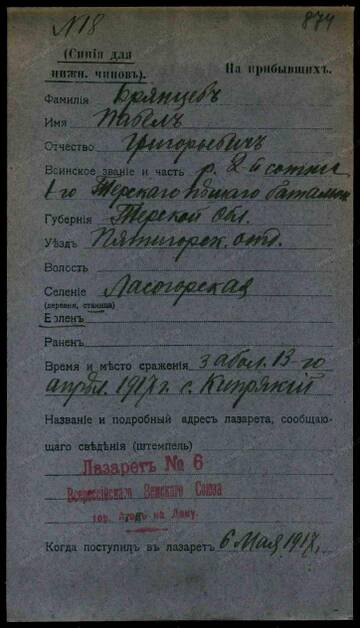 №18 874
(Синія для
нижн. чиновъ). На прибывшихъ.
Фамилія Брянцевъ
Имя Павелъ
Отчество Григорьевичъ
Воинское званіе и часть р. 2й сотни
1-го Терскаго пѣшаго батальон
Губернія Терской обл.
Уѣздъ Пятигорск. отд.
Волость
Селеніе Лысогорская
(деревня, станица)
Боленъ
Раненъ
Время и мѣсто сраженія забол. 13-го
апрѣл. 1917 г. с.
Названіе и подробный адресъ лазарета, сообщаю-
щаго свѣдѣнія (штемпель)
Лазаретъ № 6
Всероссійскаго Земскаго Союза
гор. на Дону.
Когда поступилъ въ лазаретъ 6 Мая 1917 г.